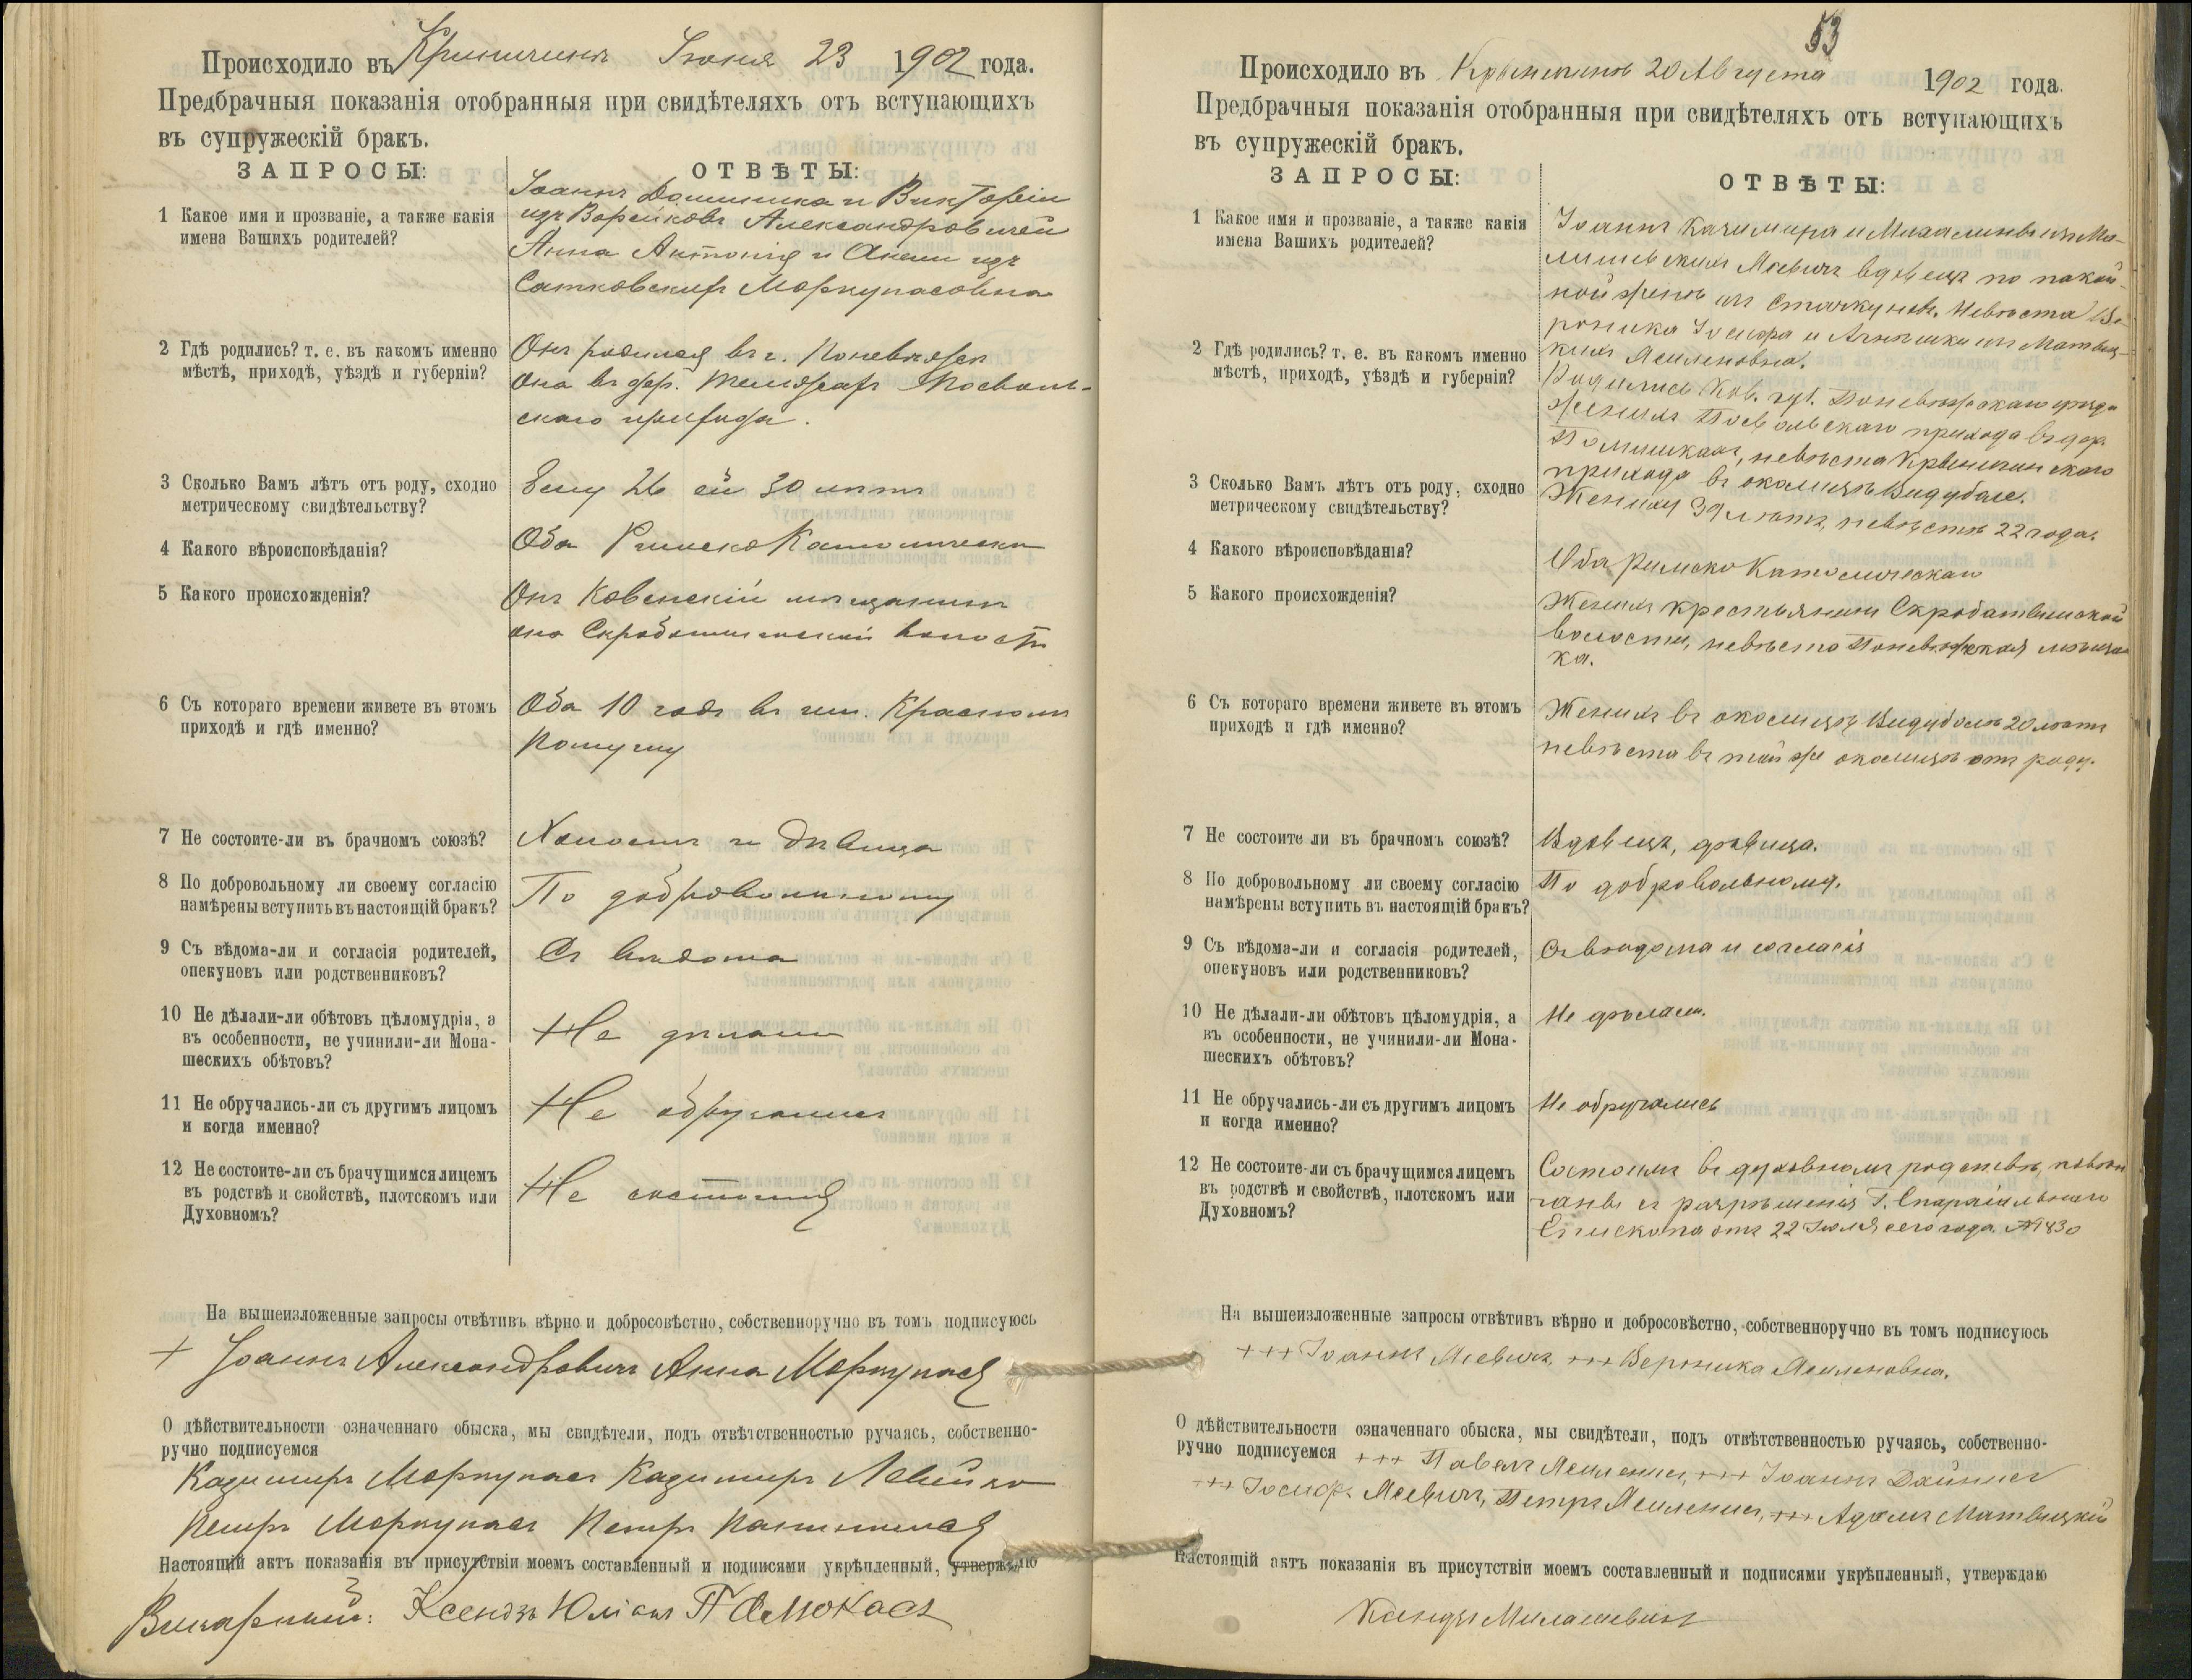 Происходило въ Криничинъ Іюня 23 1902 года.
Предбрачныя показанія отобранныя при свидѣтеляхъ отъ вступающихъ
въ супружескій бракъ.
ЗАПРОСЫ:
ОТВѢТЫ:
1 Какое имя и прозваніе, а также какія
имена Вашихъ родителей?
Іоаннъ Доминика и Викторіи
изъ Александровичей
Анна Антонія и Анны изъ
Сатковскихъ Моркунасовна
2 Гдѣ родились? т. е. въ какомъ именно
мѣстѣ, приходѣ, уѣздѣ и губерніи?
Онъ родился въ г. Поневѣжѣ
Она въ дер. Посволь-
скаго прихода.
3 Сколько Вамъ лѣтъ отъ роду, сходно
метрическому свидѣтельству?
Ему 26 ей 30 лѣтъ
4 Какого вѣроисповѣданія?
Оба Римско Католическаго
5 Какого происхожденія?
Онъ Ковенскій мѣщанинъ
она волости
6 Съ котораго времени живете въ этомъ
приходѣ и гдѣ именно?
Оба 10 годъ въ им.
7 Не состоите-ли въ брачномъ союзѣ?
Холостъ и дѣвица
8 По добровольному ли своему согласію
намѣрены вступить въ настоящій бракъ?
По добровольному
9 Съ вѣдома-ли и согласія родителей,
опекуновъ или родственниковъ?
Съ вѣдома
10 Не дѣлали-ли обѣтовъ цѣломудрія, а
въ особенности, не учинили-ли Мона-
шескихъ обѣтовъ?
Не дѣлали
11 Не обручались-ли съ другимъ лицомъ
и когда именно?
Не обручались
12 Не состоите-ли съ брачущимся лицемъ
въ родствѣ и свойствѣ, плотскомъ или
Духовномъ?
Не состоимъ
На вышеизложенные запросы отвѣтивъ вѣрно и добросовѣстно, собственноручно въ томъ подписуюсь
+ Іоаннъ Александровичъ Анна Моркунасъ
О дѣйствительности означеннаго обыска, мы свидѣтели, подъ отвѣтственностью ручаясь, собственно-
ручно подписуемся
Казимиръ Моркунасъ Казимиръ
Петръ Моркунасъ Петръ
Настоящій актъ показанія въ присутствіи моемъ составленный и подписями укрѣпленный, утверждаю
Викарный: Ксендзъ Юліанъ
53
Происходило въ 20 Августа 1902 года.
Предбрачныя показанія отобранныя при свидѣтеляхъ отъ вступающихъ
въ супружескій бракъ.
ЗАПРОСЫ:
ОТВѢТЫ:
1 Какое имя и прозваніе, а также какія
имена Вашихъ родителей?
Іоаннъ Казимира и Михалины изъ Ми-
вдовецъ по покой-
ной женѣ изъ Невѣста Ве-
роника Іосифа и изъ Матвиц-
кихъ
2 Гдѣ родились? т. е. въ какомъ именно
мѣстѣ, приходѣ, уѣздѣ и губерніи?
Родились Ков. губ. Поневѣжскаго уѣзда
женихъ Посвольскаго прихода въ дер.
невѣста
прихода въ околицѣ Видубале.
3 Сколько Вамъ лѣтъ отъ роду, сходно
метрическому свидѣтельству?
Жениху 39 лѣтъ, невѣстѣ 22 года.
4 Какого вѣроисповѣданія?
Оба Римско Католическаго
5 Какого происхожденія?
Женихъ крестьянинъ
волости, невѣста Поневѣжская мѣщан
ка.
6 Съ котораго времени живете въ этомъ
приходѣ и гдѣ именно?
Женихъ въ околицѣ 20 лѣтъ
невѣста въ той же околицѣ отъ роду.
7 Не состоите ли въ брачномъ союзѣ?
Вдовецъ, дѣвица.
8 По добровольному ли своему согласію
намѣрены вступить въ настоящій бракъ?
По добровольному.
9 Съ вѣдома-ли и согласія родителей,
опекуновъ или родственниковъ?
Съ вѣдома и согласія
10 Не дѣлали-ли обѣтовъ цѣломудрія, а
въ особенности, не учинили-ли Мона-
шескихъ обѣтовъ?
Не дѣлали.
11 Не обручались-ли съ другимъ лицомъ
и когда именно?
Не обручались
12 Не состоите-ли съ брачущимся лицемъ
въ родствѣ и свойствѣ, плотскомъ или
Духовномъ?
Состоимъ въ духовномъ родствѣ, повѣн
чаны съ разрѣшенія Г. Епархіальнаго
Епископа отъ 22 Іюля сего года №1830
На вышеизложенные запросы отвѣтивъ вѣрно и добросовѣстно, собственноручно въ томъ подписуюсь
+++ Іоаннъ +++ Вероника
О дѣйствительности означеннаго обыска, мы свидѣтели, подъ отвѣтственностью ручаясь, собственно-
ручно подписуемся +++ Павелъ +++ Іоаннъ
+++ Іосифъ Петръ +++ Адамъ Матвицкій
Настоящій актъ показанія въ присутствіи моемъ составленный и подписями укрѣпленный, утверждаю
Ксендзъ Милашевичъ